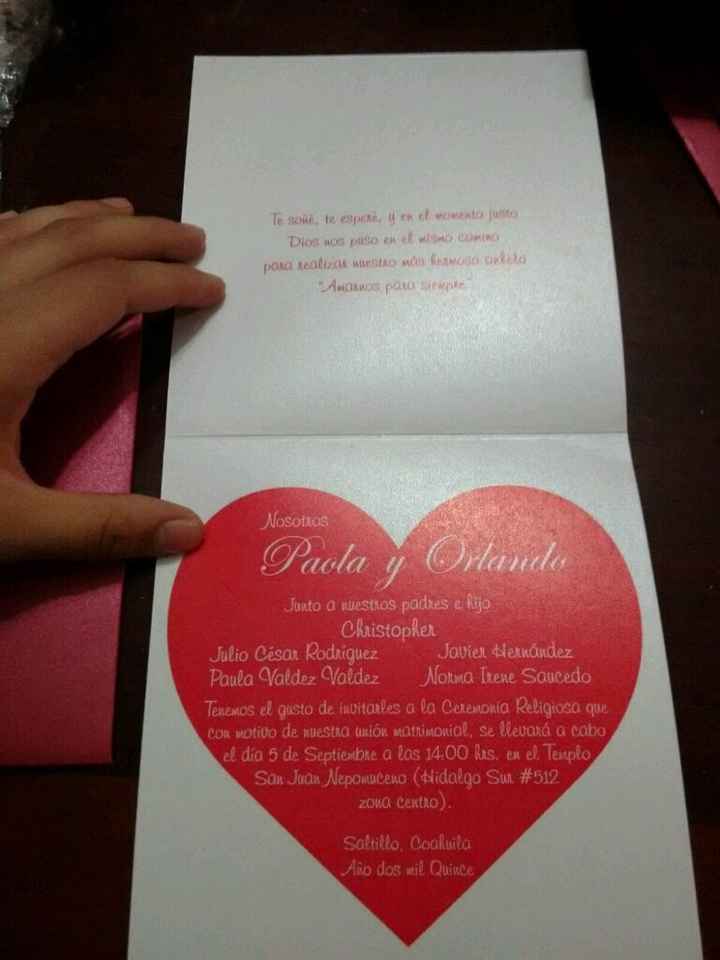 Te soñé, te esperé, y en el momento justo
Dios nos puso en el mismo camino
para realizar nuestro más hermoso anhelo
"Amarnos para siempre"
Nosotros
Paola y Orlando
Junto a nuestros padres e hijo
Christopher
Julio César Rodríguez Javier Hernández
Paula Valdez Valdez Norma Irene Saucedo
Tenemos el gusto de invitarles a la Ceremonia Religiosa que
con motivo de nuestra unión matrimonial, se llevará a cabo
el día 5 de Septiembre a las 14:00 hrs. en el Templo
San Juan Nepomuceno (Hidalgo Sur #512
zona centro).
Saltillo, Coahuila
Año dos mil Quince